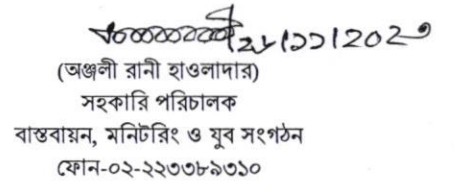 ২৮/১১/২০২৩
(অঞ্জলী রানী হাওলাদার)
সহকারি পরিচালক
বাস্তবায়ন, মনিটরিং ও যুব সংগঠন
ফোন-০২-২২৩৩৮৯৩১০